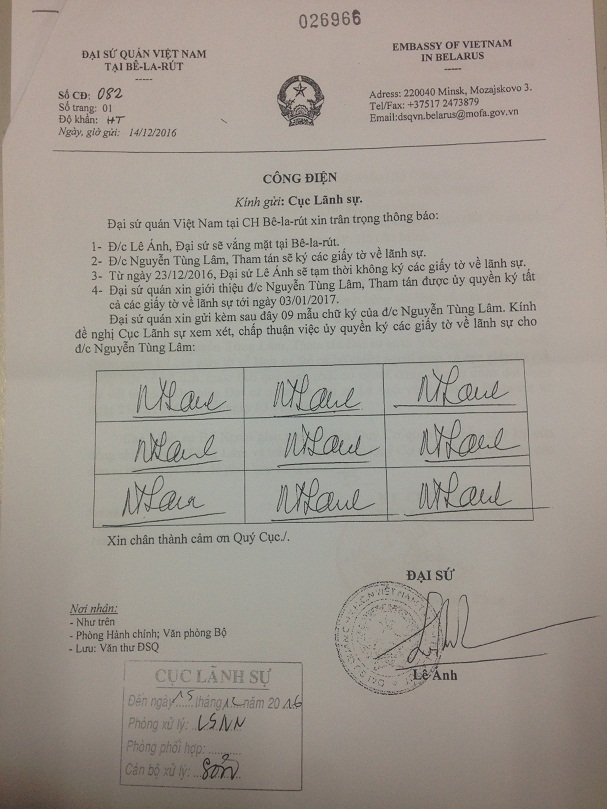 026966
ĐẠI SỨ QUÁN VIỆT NAM
TẠI BÊ-LA-RÚT
-----
Số CĐ: 082
Số trang: 01
Độ khẩn: HT
Ngày, giờ gửi: 14/12/2016
EMBASSY OF VIETNAM
IN BELARUS
-----
Adress: 220040 Minsk, Mozajskovo 3.
Tel/Fax: +37517 2473879
Email:dsqvn.belarus@mofa.gov.vn
CÔNG ĐIỆN
Kính gửi: Cục Lãnh sự.
Đại sứ quán Việt Nam tại CH Bê-la-rút xin trân trọng thông báo:
1- Đ/c Lê Ánh, Đại sứ sẽ vắng mặt tại Bê-la-rút.
2- Đ/c Nguyễn Tùng Lâm, Tham tán sẽ ký các giấy tờ về lãnh sự.
3- Từ ngày 23/12/2016, Đại sứ Lê Ánh sẽ tạm thời không ký các giấy tờ về lãnh sự.
4- Đại sứ quán xin giới thiệu đ/c Nguyễn Tùng Lâm, Tham tán được ủy quyền ký tất
cả các giấy tờ về lãnh sự tới ngày 03/01/2017.
Đại sứ quán xin gửi kèm sau đây 09 mẫu chữ ký của đ/c Nguyễn Tùng Lâm. Kính
đề nghị Cục Lãnh sự xem xét, chấp thuận việc ủy quyền ký các giấy tờ về lãnh sự cho
đ/c Nguyễn Tùng Lâm:
Xin chân thành cảm ơn Quý Cục./.
ĐẠI SỨ
Lê Ánh
Nơi nhận:
- Như trên
- Phòng Hành chính; Văn phòng Bộ
- Lưu: Văn thư ĐSQ
CỤC LÃNH SỰ
Đến ngày 15 tháng 12 năm 2016
Phòng xử lý: LSNN
Phòng phối hợp: ............
Cán bộ xử lý: Sơn